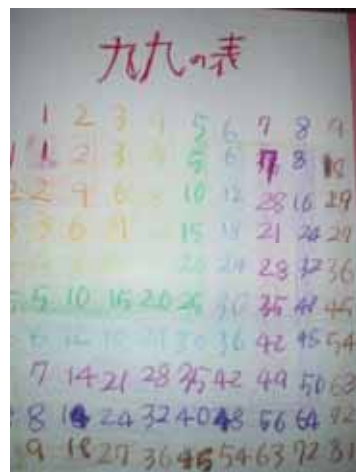 九九の表
1 2 3 4 5 6 7 8 9
1 1 2 3 5 6 7 8
2 2 9 6 10 12 28 16 29
3 3 6 9 15 18 21 24 27
20 24 28 32 36
5 5 10 15 20 25 30 35 45
6 12 30 36 42 54
7 14 21 28 35 42 49 50 63
8 24 32 40 48 56 64 72
9 18 27 36 45 54 63 72 81